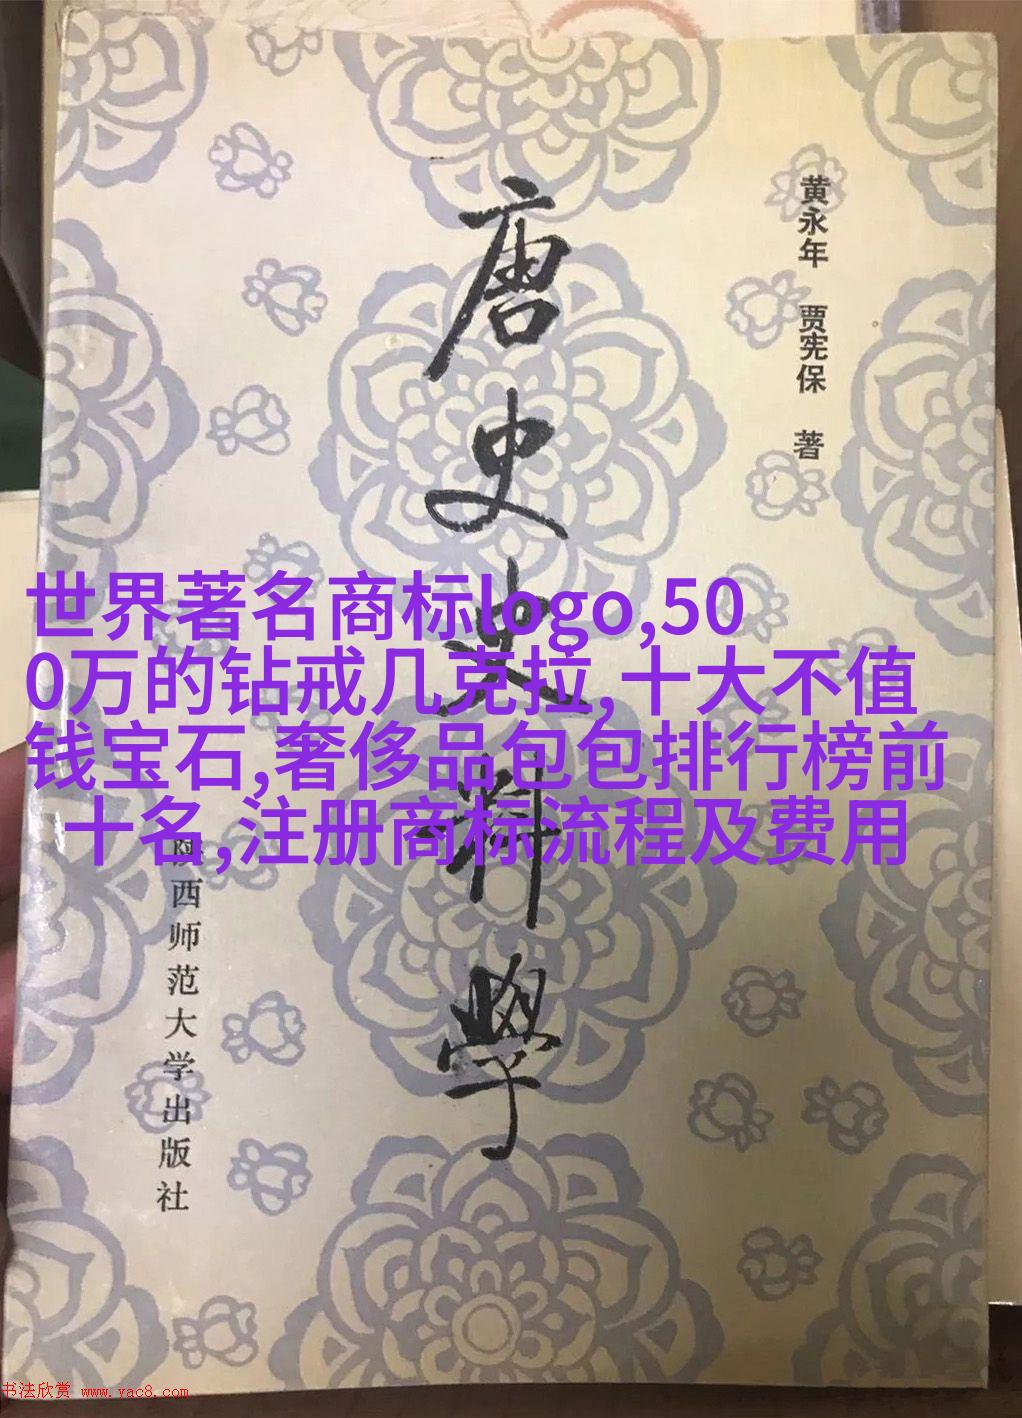 黄永年 贾宪保 著
唐史史料學
世界著名商标logo,50
0万的钻戒几克拉,十大不值
钱宝石,奢侈品包包排行榜前
十名,注册商标流程及费用
西师范大学出版社
书法欣赏 www.yac8.com